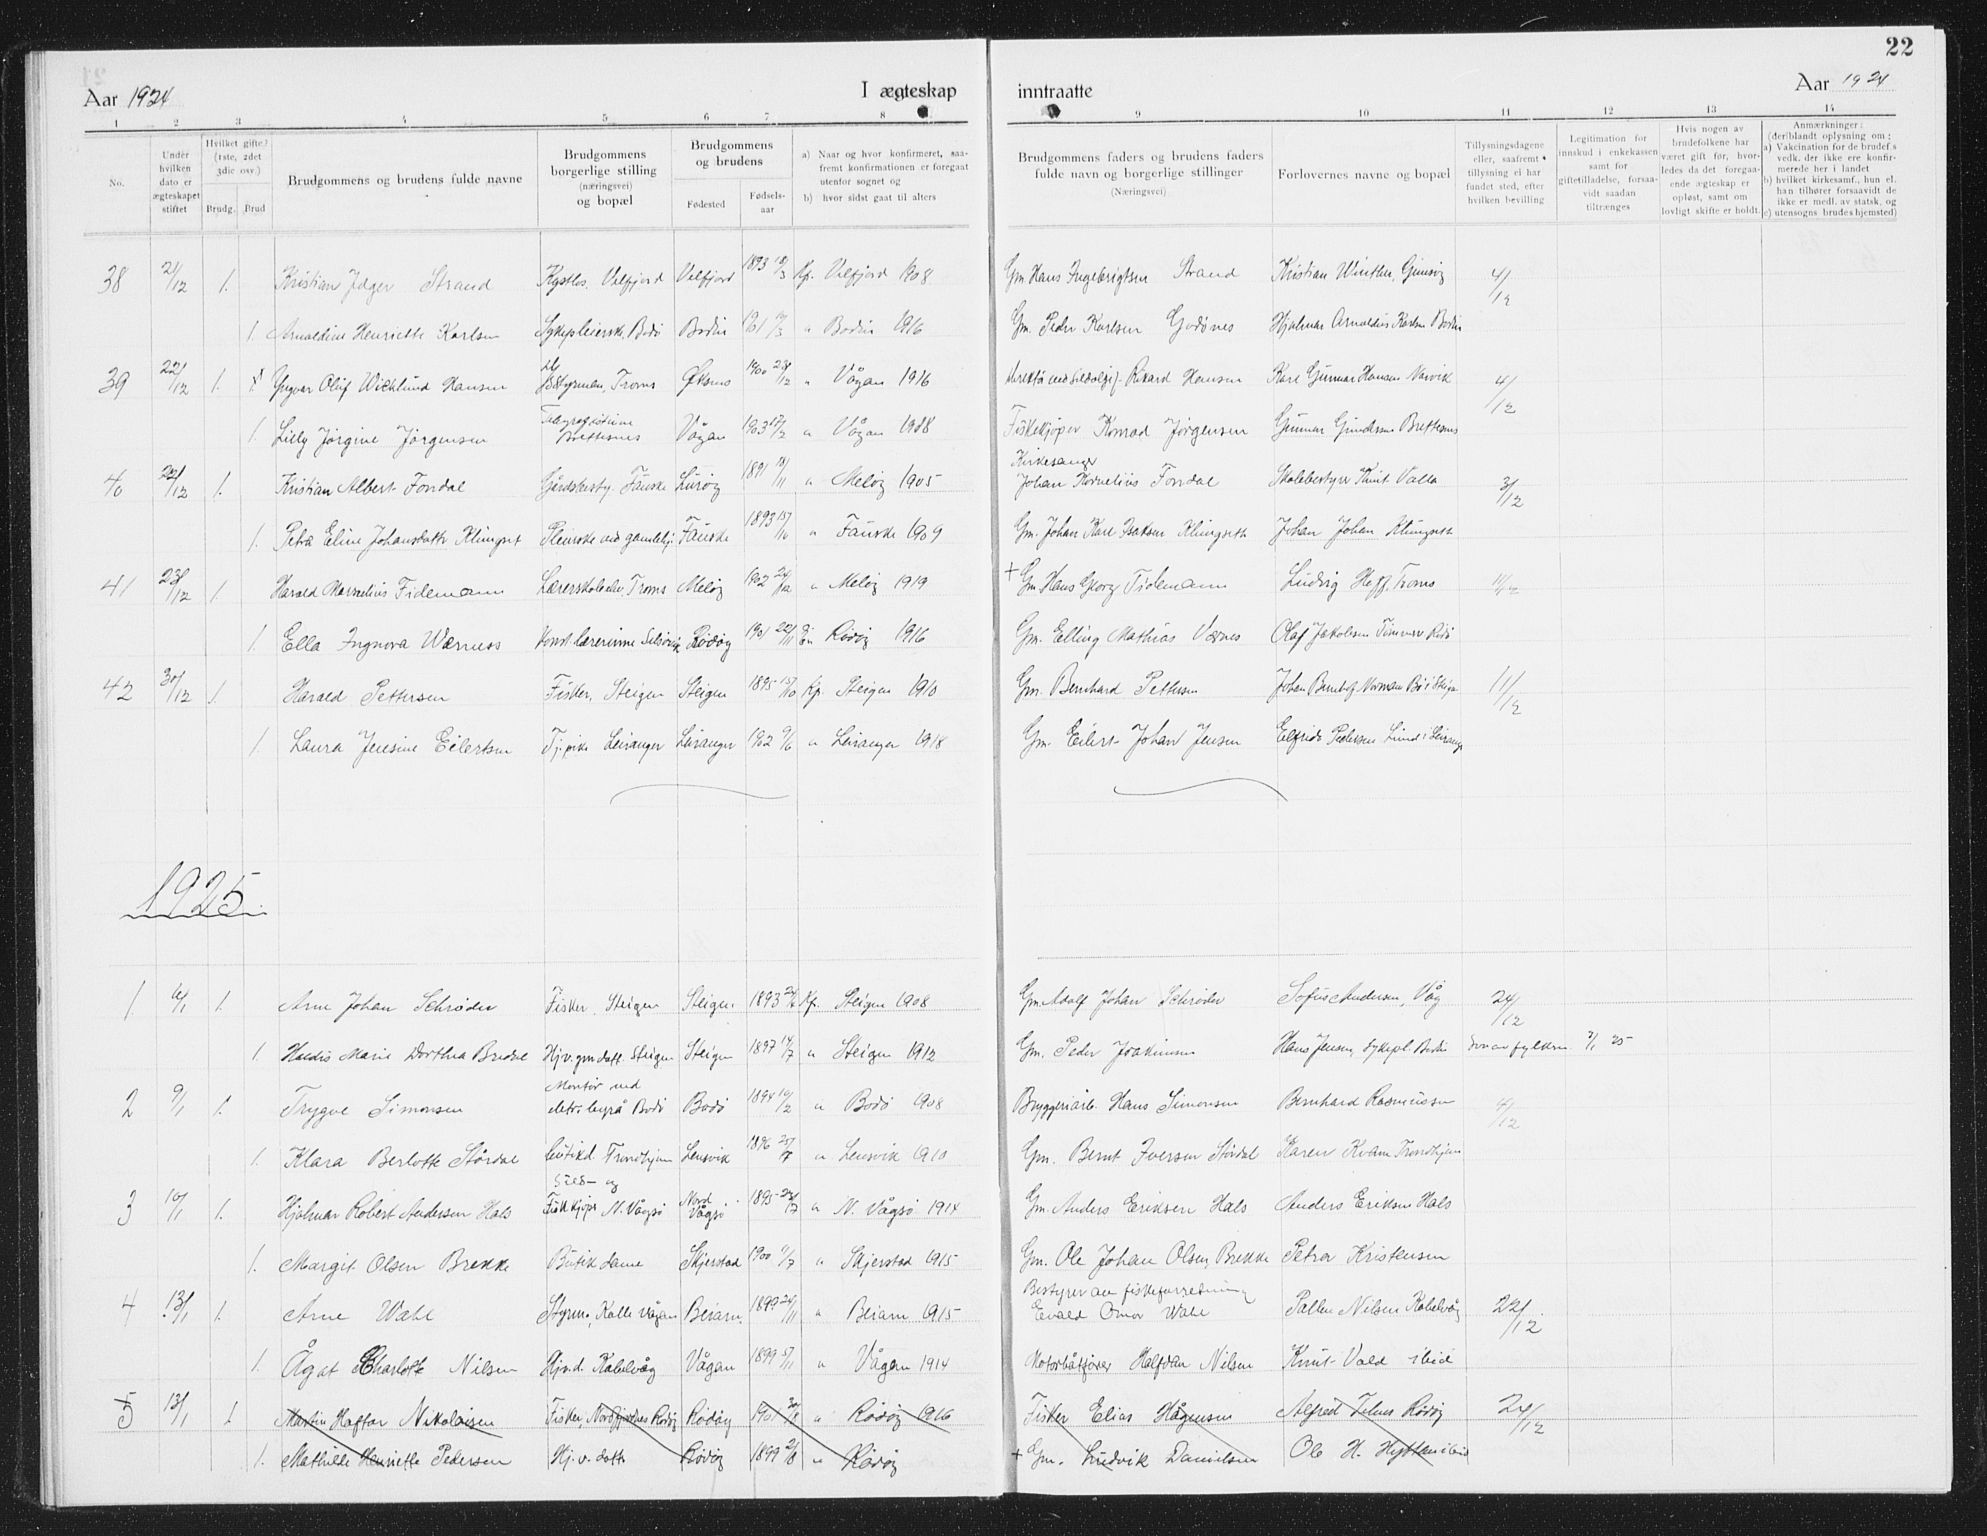 22
Aar 1924 I ægteskap inntraatte Aar 1924
1 2 3 4 5 6 7 8 9 10 11 12 13 14
No.
Under hvilken dato er ægteskapet stiftet
Hvilket gifte? (1ste, 2det 3die osv.)
Brudg. Brud
Brudgommens og brudens fulde navne
Brudgommens borgerlige stilling (næringsvei) og bopæl
Brudgommens og brudens
Fødested
Fødsels-aar
a) Naar og hvor konfirmeret, saafremt konfirmationen er foregaat utenfor sognet og
b) hvor sidst gaat til alters
Brudgommens faders og brudens faders fulde navn og borgerlige stillinger (Næringsvei)
Forlovernes navne og bopæl
Tillysningsdagene eller, saafremt tillysning ei har fundet sted, efter hvilken bevilling
Legitimation for innskud i enkekassen samt for giftetilladelse, forsaavidt saadan tiltrænges
Hvis nogen av brudefolkene har været gift før, hvorledes da det foregaaende ægteskap er opløst, samt om lovligt skifte er holdt.
Anmærkninger: (deriblandt oplysning om: a) Vakcination for de brudef.s vedk. der ikke ere konfirmerede her i landet b) hvilket kirkesamf., hun el. han tilhører forsaavidt de ikke er medl. av statsk. og c) utensogns brudes hjemsted)
38 21/12 1. Kristian Jæger Strand Kystlos. Velfjord Velfjord 1893 Kp. Velfjord 1908 Gm. Hans Ingebrigtsen Strand Kristian Winther, Gimsøy 4/12
1. Arnoldine Henriette Karlsen Sykepleierske, Bodø Bodin " Bodin 1916 Gm. Peder Karlsen Godønes Hjalmar Arnoldus Karlsen Bodin
39 22/12 1. Yngvar Oluf Wicklund Hansen Styrman, Troms Øksnes 1900 28/12 " Vågan 1916 Rikard Hansen Karl Gunnar Hansen Narvik 4/12
1. Lilly Jørgine Jørgensen Brettesnes Vågan 1903 17/2 " Vågan 1918 Fiskekjøper Konrad Jørgensen Gunnar Gundersen Brettesnes
40 22/12 1. Kristian Albert Fondal Gårdsbesty. Fauske Lurøy 1891 18/11 " Meløy 1905 Kirkesanger Johan Kornelius Fondal Skolebestyrer Knut Valla 3/12
1. Petra Eline Johansdatter Klungset Pleierske ved gamlehj. Fauske 1893 15/10 " Fauske 1909 Gm. Johan Karl Isaksen Klungseth Johan Johan Klungseth
41 23/12 1. Harald Marselius Tidemann Lærerskoleelev, Troms Meløy 1902 " Meløy 1919 + Gm Hans Georg Tidemann Ludvig Hoff, Troms 11/12
1. Ella Ingnora Wærness Konst. lærerinne Selsøvik Rødøy 1901 22/11 Rødøy 1916 Gm. Elling Mathias Værnes Olaf Jakobsen
42 30/12 1. Harald Pettersen Fisker, Steigen Steigen 1895 15/10 Kp. Steigen 1910 Gm. Bernhard Pettersen Johan Norman Bø i Steigen 11/12
1. Laura Jensine Eilertsen Tj. pike Leiranger Leiranger 1902 9/6 " Leiranger 1918 Gm. Eilert Johan Jensen Elfrida Pedersen Lund i Leiranger
1925.
1 6/1 1. Arne Johan Schrøder Fisker, Steigen Steigen 1893 Kp. Steigen 1908 Gm. Adolf Johan Schrøder Sofus Andersen, Våg 24/12
1. Haldis Marie Dorthea Bredal Hj.v. gm. datt. Steigen Steigen 1897 14/7 " Steigen 1912 Gm. Peder Joakimsen Hans Jensen, sykepl. Bodø av fylkesm. 3/1 25
2 9/1 1. Trygve Simonsen Montør ved elektr. byrå Bodø Bodø 1894 10/2 " Bodø 1908 Bryggeriarb. Hans Simonsen Bernhard Rasmussen 4/12
1. Klara Berlotte Størdal Butikd. Trondhjem Lensvik 1896 25/7 " Lensvik 1910 Gm. Bernt Iversen Størdal Karen Kvam Trondhjem
3 10/1 1. Hjalmar Robert Andersen Hals Sild- og Fiskkjøper N. Vågsø Nord Vågsø 1895 24/7 " N. Vågsø 1914 Gm. Anders Eriksen Hals Anders Eriksen Hals
1. Margit Olsen Brekke Butikdame Skjerstad 1900 11/7 " Skjerstad 1915 Gm. Ole Johan Olsen Brekke Petra Kristensen
4 13/1 1. Arne Wahl Styrm., Kalle Vågan Beiarn 1899 24/11 " Beiarn 1915 Bestyrer av fiskeforretning Evald Omar Wahl Palle Nilsen Kabelvåg 22/12
1. Ågot Charlotte Nilsen Hj.v.d. Kabelvåg Vågan 1899 5/11 " Vågan 1914 Motorbåtfører Halfdan Nilsen Knut Vold ibid
5 13/1 1. Martin Haftor Nikolaisen Fisker, Nordfjordnes Rødøy Rødøy 1901 " Rødøy 1916 Fisker Elias Hågensen Alfred Telnes Rødøy 20/12
1. Mathilde Henriette Pedersen Hj. v. datt. Rødøy 1899 2/8 " Rødøy + Gm. Ludvik Danielsen Ole H. Hyttan ibid